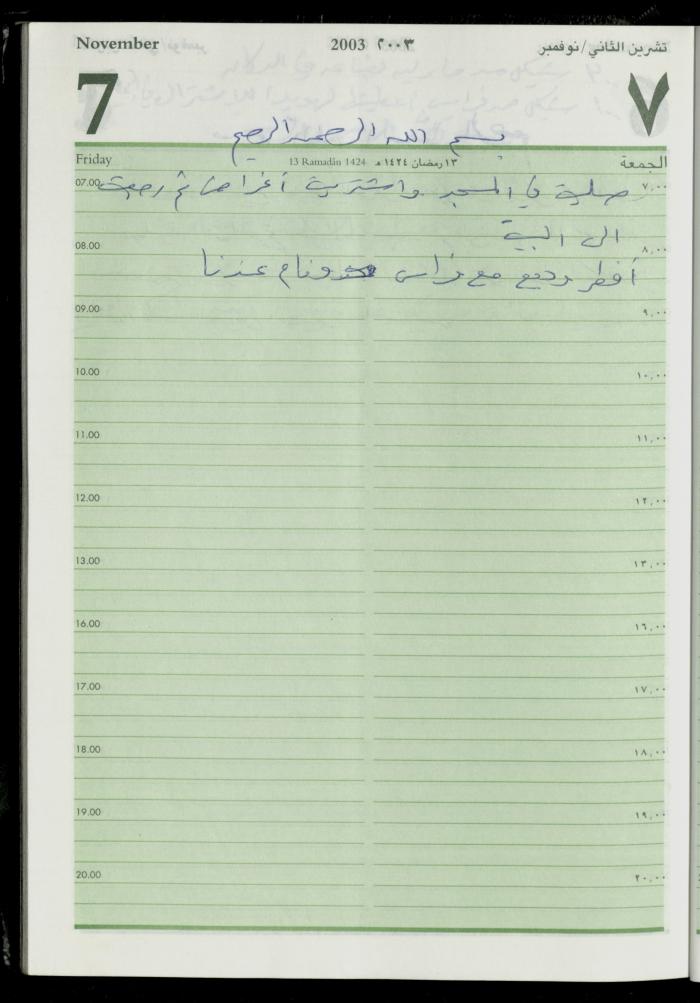 November 2003 ٢٠٠٣ تشرين الثاني/نوفمبر
7 ٧
بسم الله الرحمن الرحيم
Friday 13 Ramadān 1424 ١٣ رمضان ١٤٢٤ هـ الجمعة
07.00 ٧,٠٠
صلية في المسجد واشترية أغراض ثم رجعت
الى البية
08.00 ٨,٠٠
أفطر وديع مع فراس ونام عندنا
09.00 ٩,٠٠
10.00 ١٠,٠٠
11.00 ١١,٠٠
12.00 ١٢,٠٠
13.00 ١٣,٠٠
16.00 ١٦,٠٠
17.00 ١٧,٠٠
18.00 ١٨,٠٠
19.00 ١٩,٠٠
20.00 ٢٠,٠٠